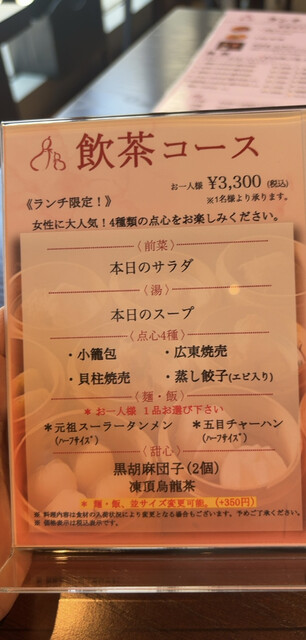 飲茶コース
お一人様 ¥3,300 (税込)
《ランチ限定！》
※1名様より承ります。
女性に大人気！4種類の点心をお楽しみください。
〈前菜〉
本日のサラダ
〈湯〉
本日のスープ
〈点心4種〉
・小籠包 ・広東焼売
・貝柱焼売 ・蒸し餃子(エビ入り)
〈麺・飯〉
* お一人様 1品お選び下さい
*元祖スーラータンメン *五目チャーハン
(ハーフサイズ) (ハーフサイズ)
〈甜心〉
黒胡麻団子(2個)
凍頂烏龍茶
* 麺・飯、並サイズ変更可能。(+350円)
※ 料理内容は食材の入荷状況により変更となる場合もございます。予めご了承ください。
※ 価格表示は税込表示です。